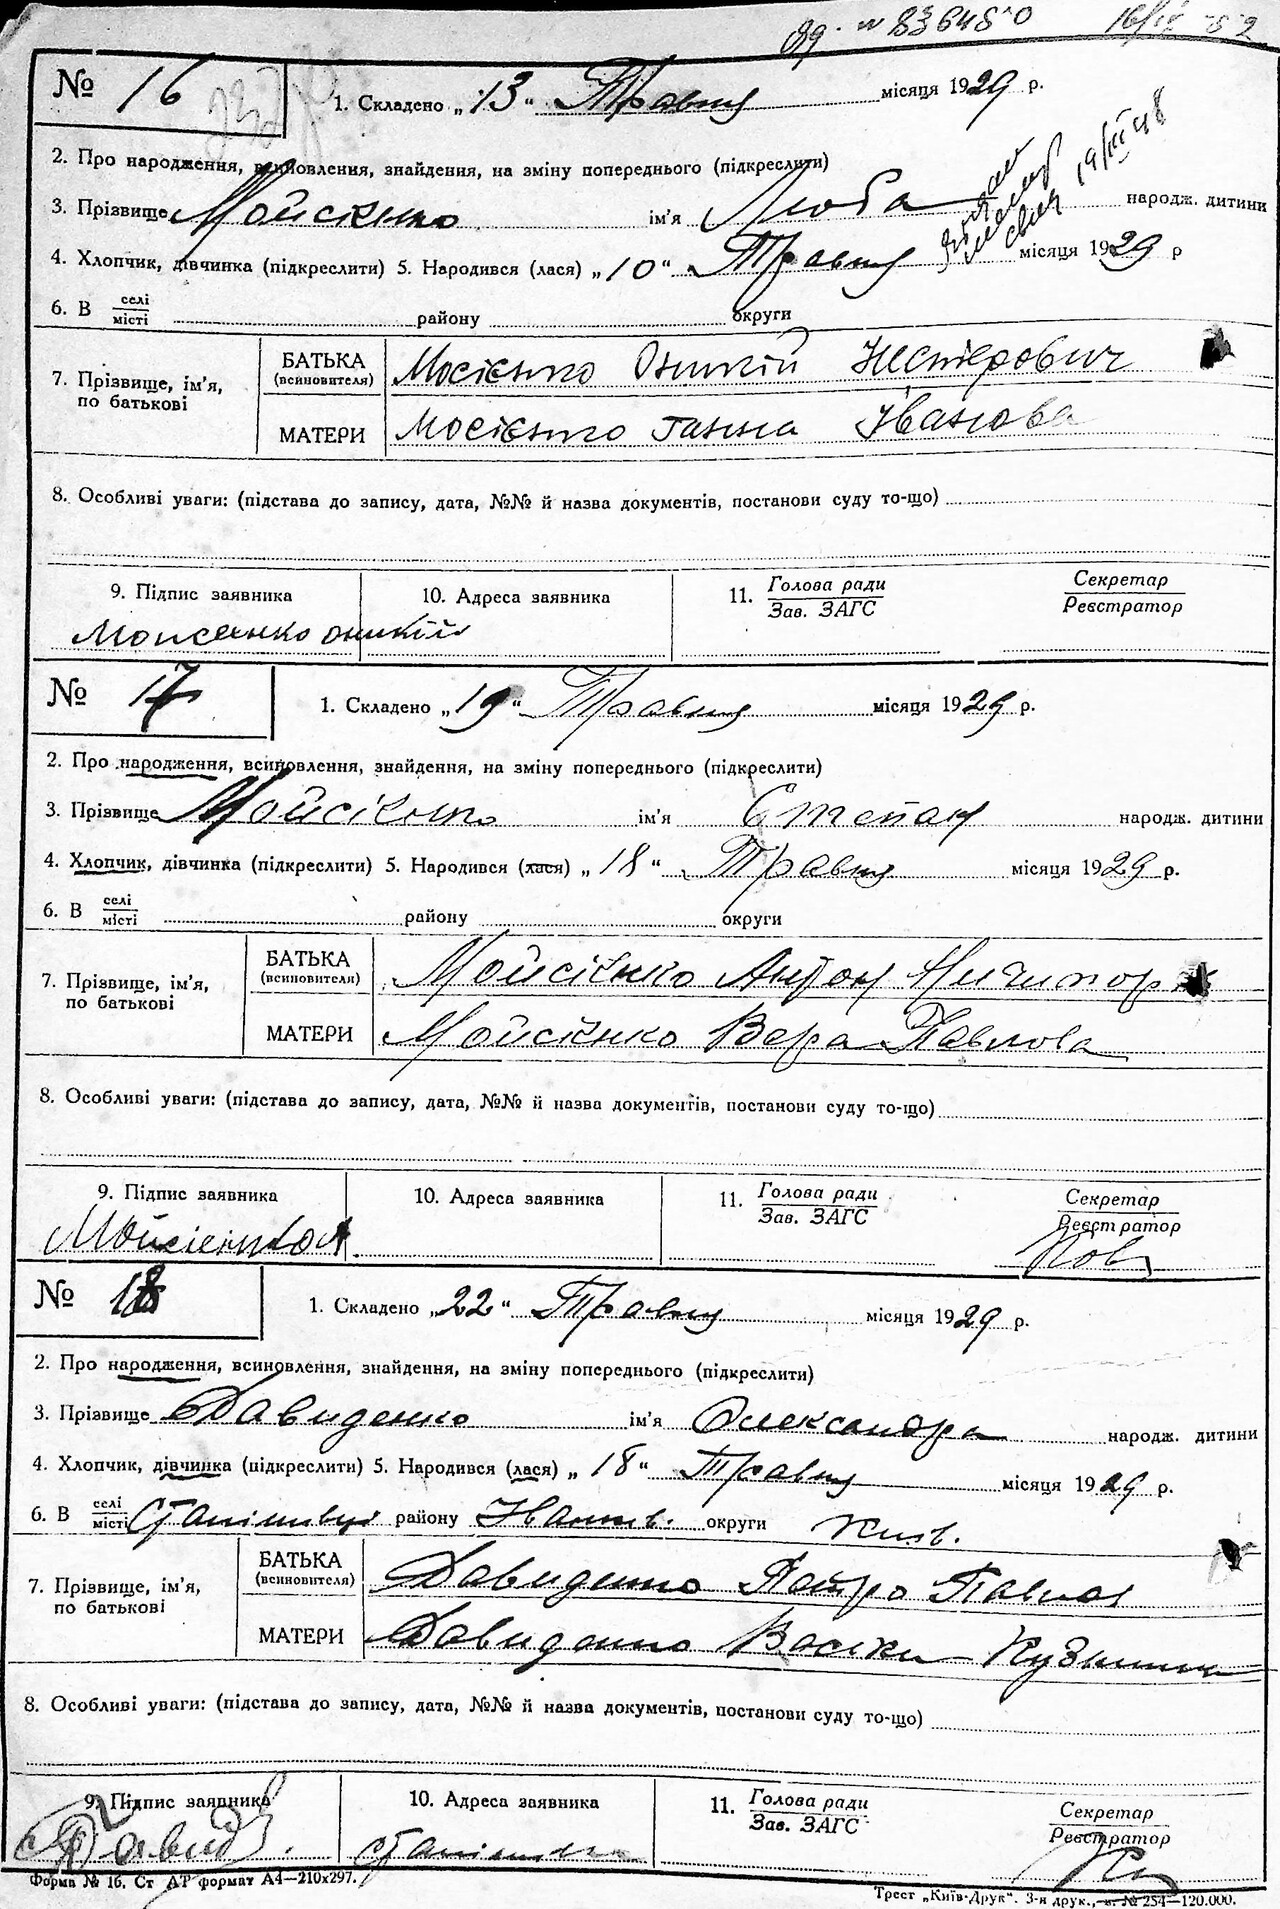 № 16
1. Складено „13“ Травня місяця 1929 р.
2. Про народження, всиновлення, знайдення, на зміну попереднього (підкреслити)
3. Прізвище Мойсієнко ім'я Люба народж. дитини
19/III 48
4. Хлопчик, дівчинка (підкреслити) 5. Народився (лася) „10“ Травня місяця 1929 р
6. В селі місті району округи
7. Прізвище, ім'я, по батькові
БАТЬКА (всиновителя) Мосієнко Оникій Нестерович
МАТЕРИ Мосієнко Ганна Іванова
8. Особливі уваги: (підстава до запису, дата, №№ й назва документів, постанови суду то-що)
9. Підпис заявника 10. Адреса заявника 11. Голова ради Зав. ЗАГС Секретар Реєстратор
Моисеенко Оникій
№ 17
1. Складено „19“ Травня місяця 1929 р.
2. Про народження, всиновлення, знайдення, на зміну попереднього (підкреслити)
3. Прізвище Мойсієнко ім'я Степан народж. дитини
4. Хлопчик, дівчинка (підкреслити) 5. Народився (лася) „18“ Травня місяця 1929 р.
6. В селі місті району округи
7. Прізвище, ім'я, по батькові
БАТЬКА (всиновителя) Мойсієнко Антон Ничипор
МАТЕРИ Мойсієнко Вера Павлова
8. Особливі уваги: (підстава до запису, дата, №№ й назва документів, постанови суду то-що)
9. Підпис заявника 10. Адреса заявника 11. Голова ради Зав. ЗАГС Секретар Реєстратор
Мойсіенко А
№ 18
1. Складено „22“ Травня місяця 1929 р.
2. Про народження, всиновлення, знайдення, на зміну попереднього (підкреслити)
3. Прізвище Давиденко ім'я Олександра народж. дитини
4. Хлопчик, дівчинка (підкреслити) 5. Народився (лася) „18“ Травня місяця 1929 р.
6. В селі місті Станішівці району Іванків. округи Київ.
7. Прізвище, ім'я, по батькові
БАТЬКА (всиновителя) Давиденко Петро Павлов
МАТЕРИ Давиденко Васіли Кузьмини
8. Особливі уваги: (підстава до запису, дата, №№ й назва документів, постанови суду то-що)
9. Підпис заявника 10. Адреса заявника 11. Голова ради Зав. ЗАГС Секретар Реєстратор
Форма № 16. Ст АР формат А4—210х297.
Трест „Київ-Друк“. 3-я друк., в. № 254—120.000.